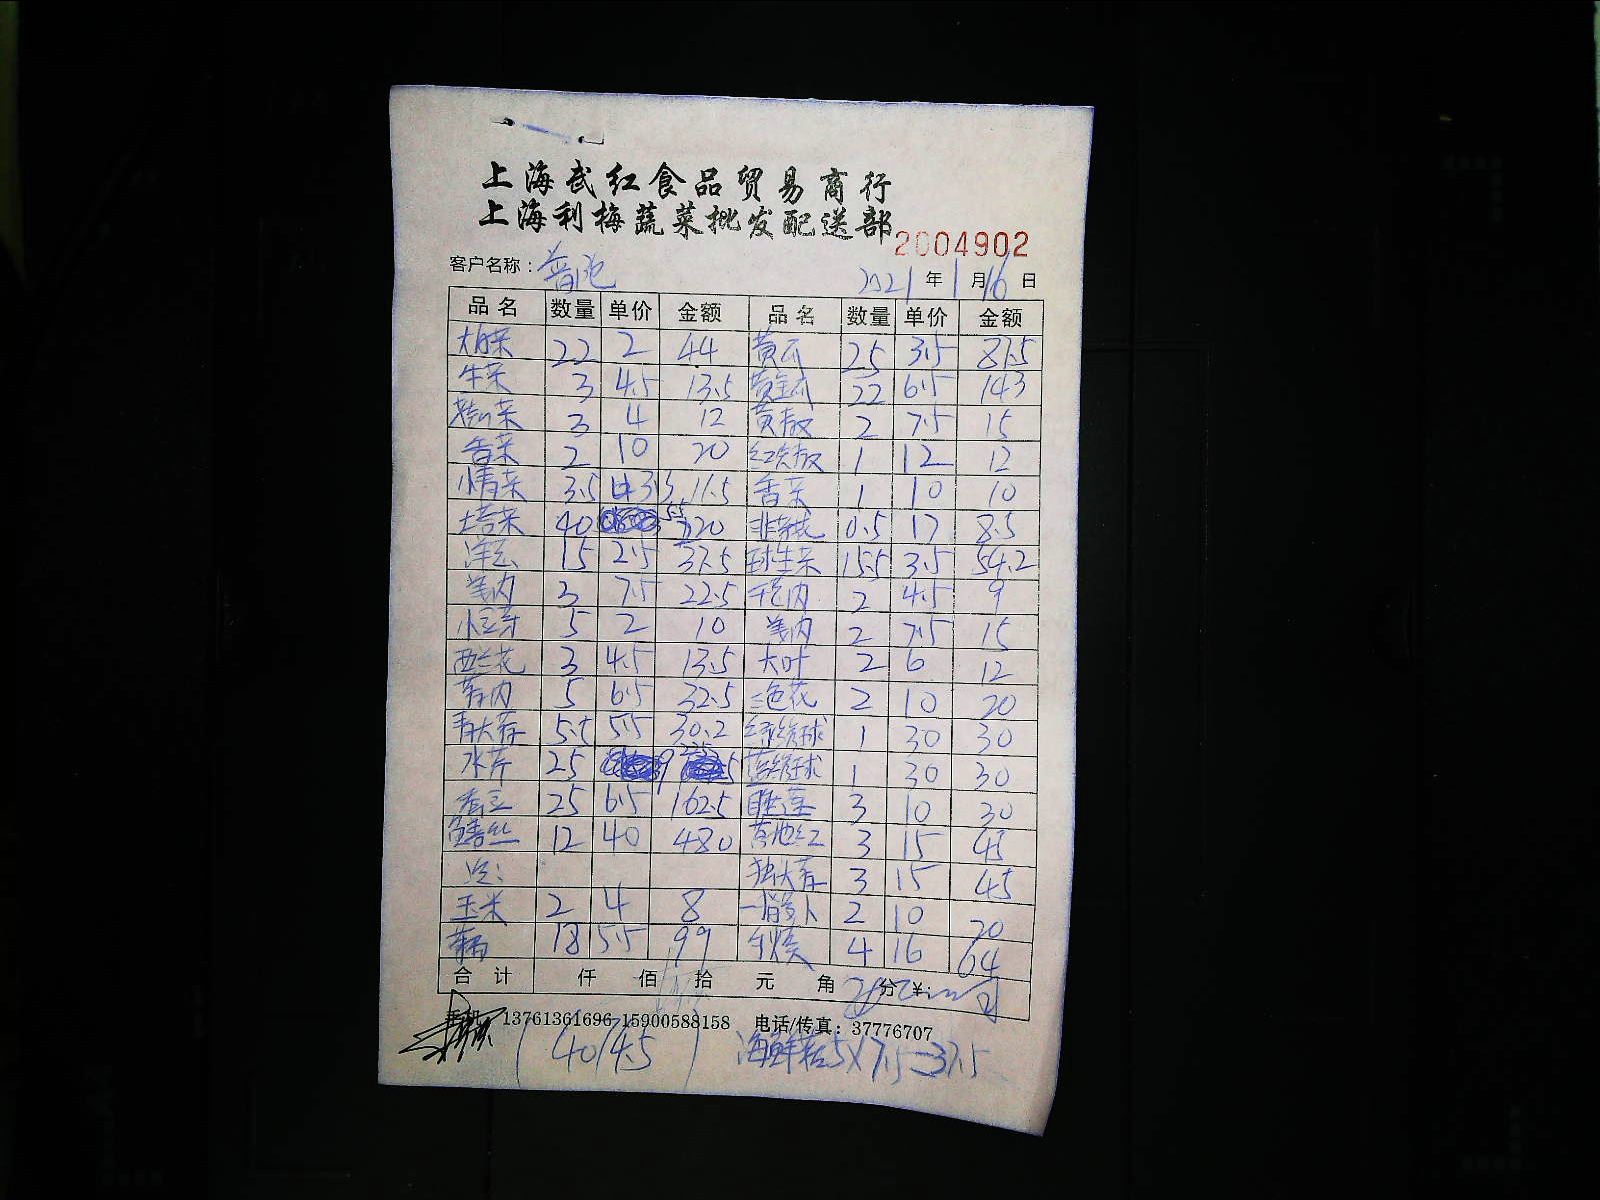 上海武红食品贸易商行
上海利梅蔬菜批发配送部
2004902
客户名称: 2021年1月16日
品名 数量 单价 金额 品名 数量 单价 金额
大白菜 22 2 44 黄瓜 25 3.5 87.5
生菜 3 4.5 13.5 黄金瓜 22 6.5 143
3 4 12 黄椒 2 7.5 15
香菜 2 10 20 红尖椒 1 12 12
3.5 11.5 香菜 1 10 10
塔菜 40 5.5 220 韭芽花 0.5 17 8.5
洋葱 15 2.5 37.5 球生菜 15.5 3.5 54.2
美内 3 7.5 22.5 2 4.5 9
小豆芽 5 2 10 美内 2 7.5 15
西兰花 3 4.5 13.5 大叶 2 6 12
5 6.5 32.5 三色花 2 10 20
青大蒜 5.5 5.5 30.2 绣球 1 30 30
水芹 25 9 225 蓝绣球 1 30 30
25 6.5 162.5 睡莲 3 10 30
鳝丝 12 40 480 3 15 45
独大蒜 3 15 45
玉米 2 4 8 萝卜 2 10 20
18 5.5 99 4 16 64
合计 仟 佰 拾 元 角 分 ¥:
13761361696 15900588158 电话/传真: 37776707
(40/4.5) 海鲜菇5×7.5=37.5